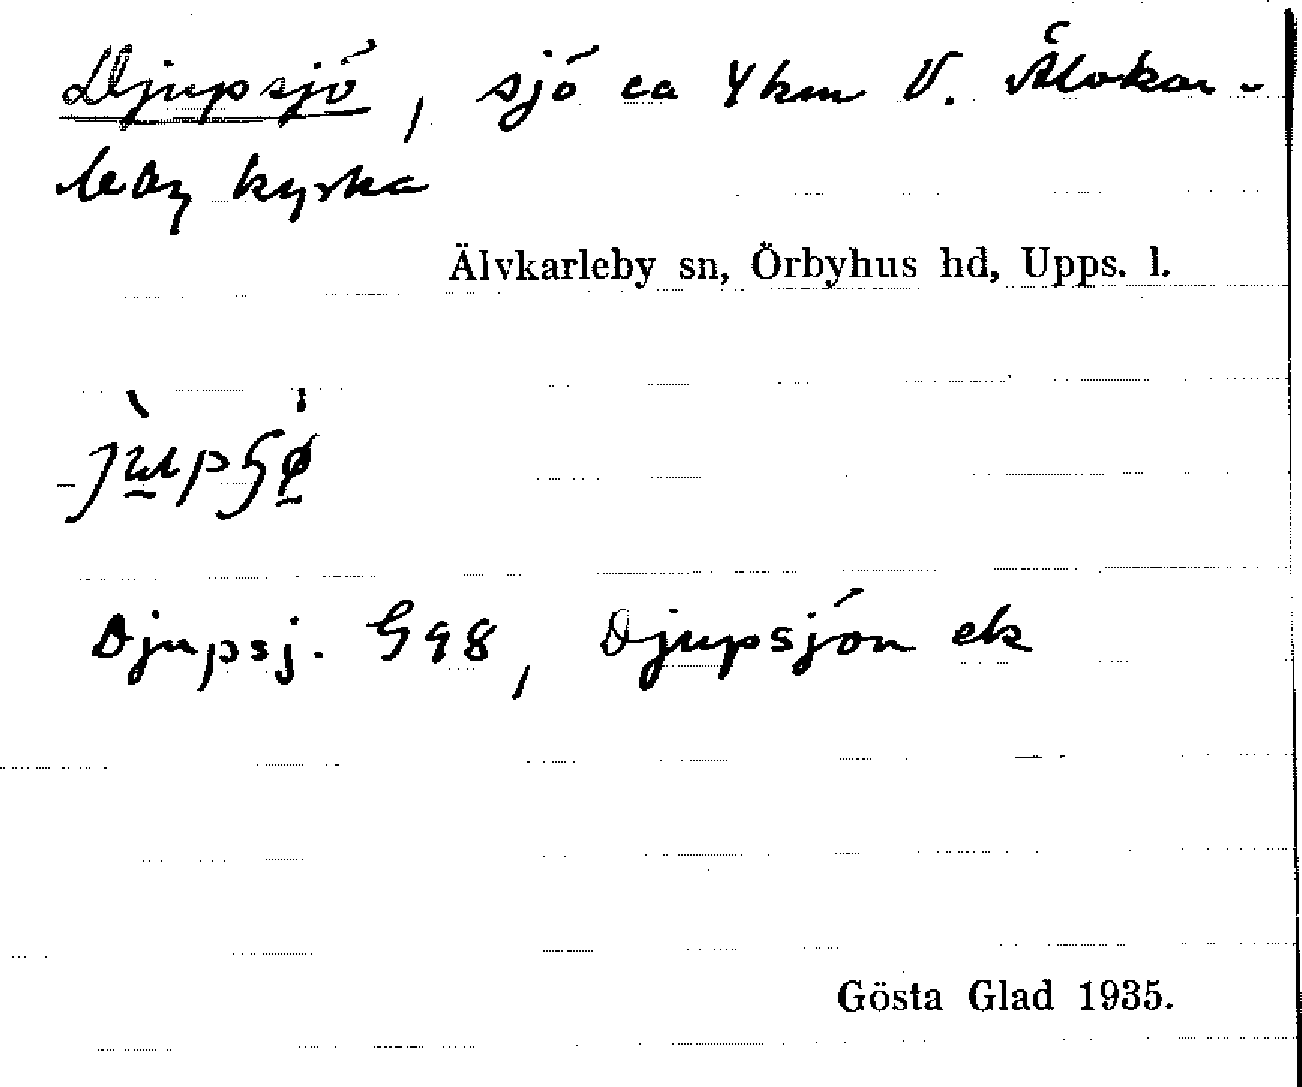 Djupsjö, sjö ca 4 km V. Älvkar-
leby kyrka
Älvkarleby sn, Örbyhus hd, Upps. l.
Djupsj. G98, Djupsjön ek
Gösta Glad 1935.